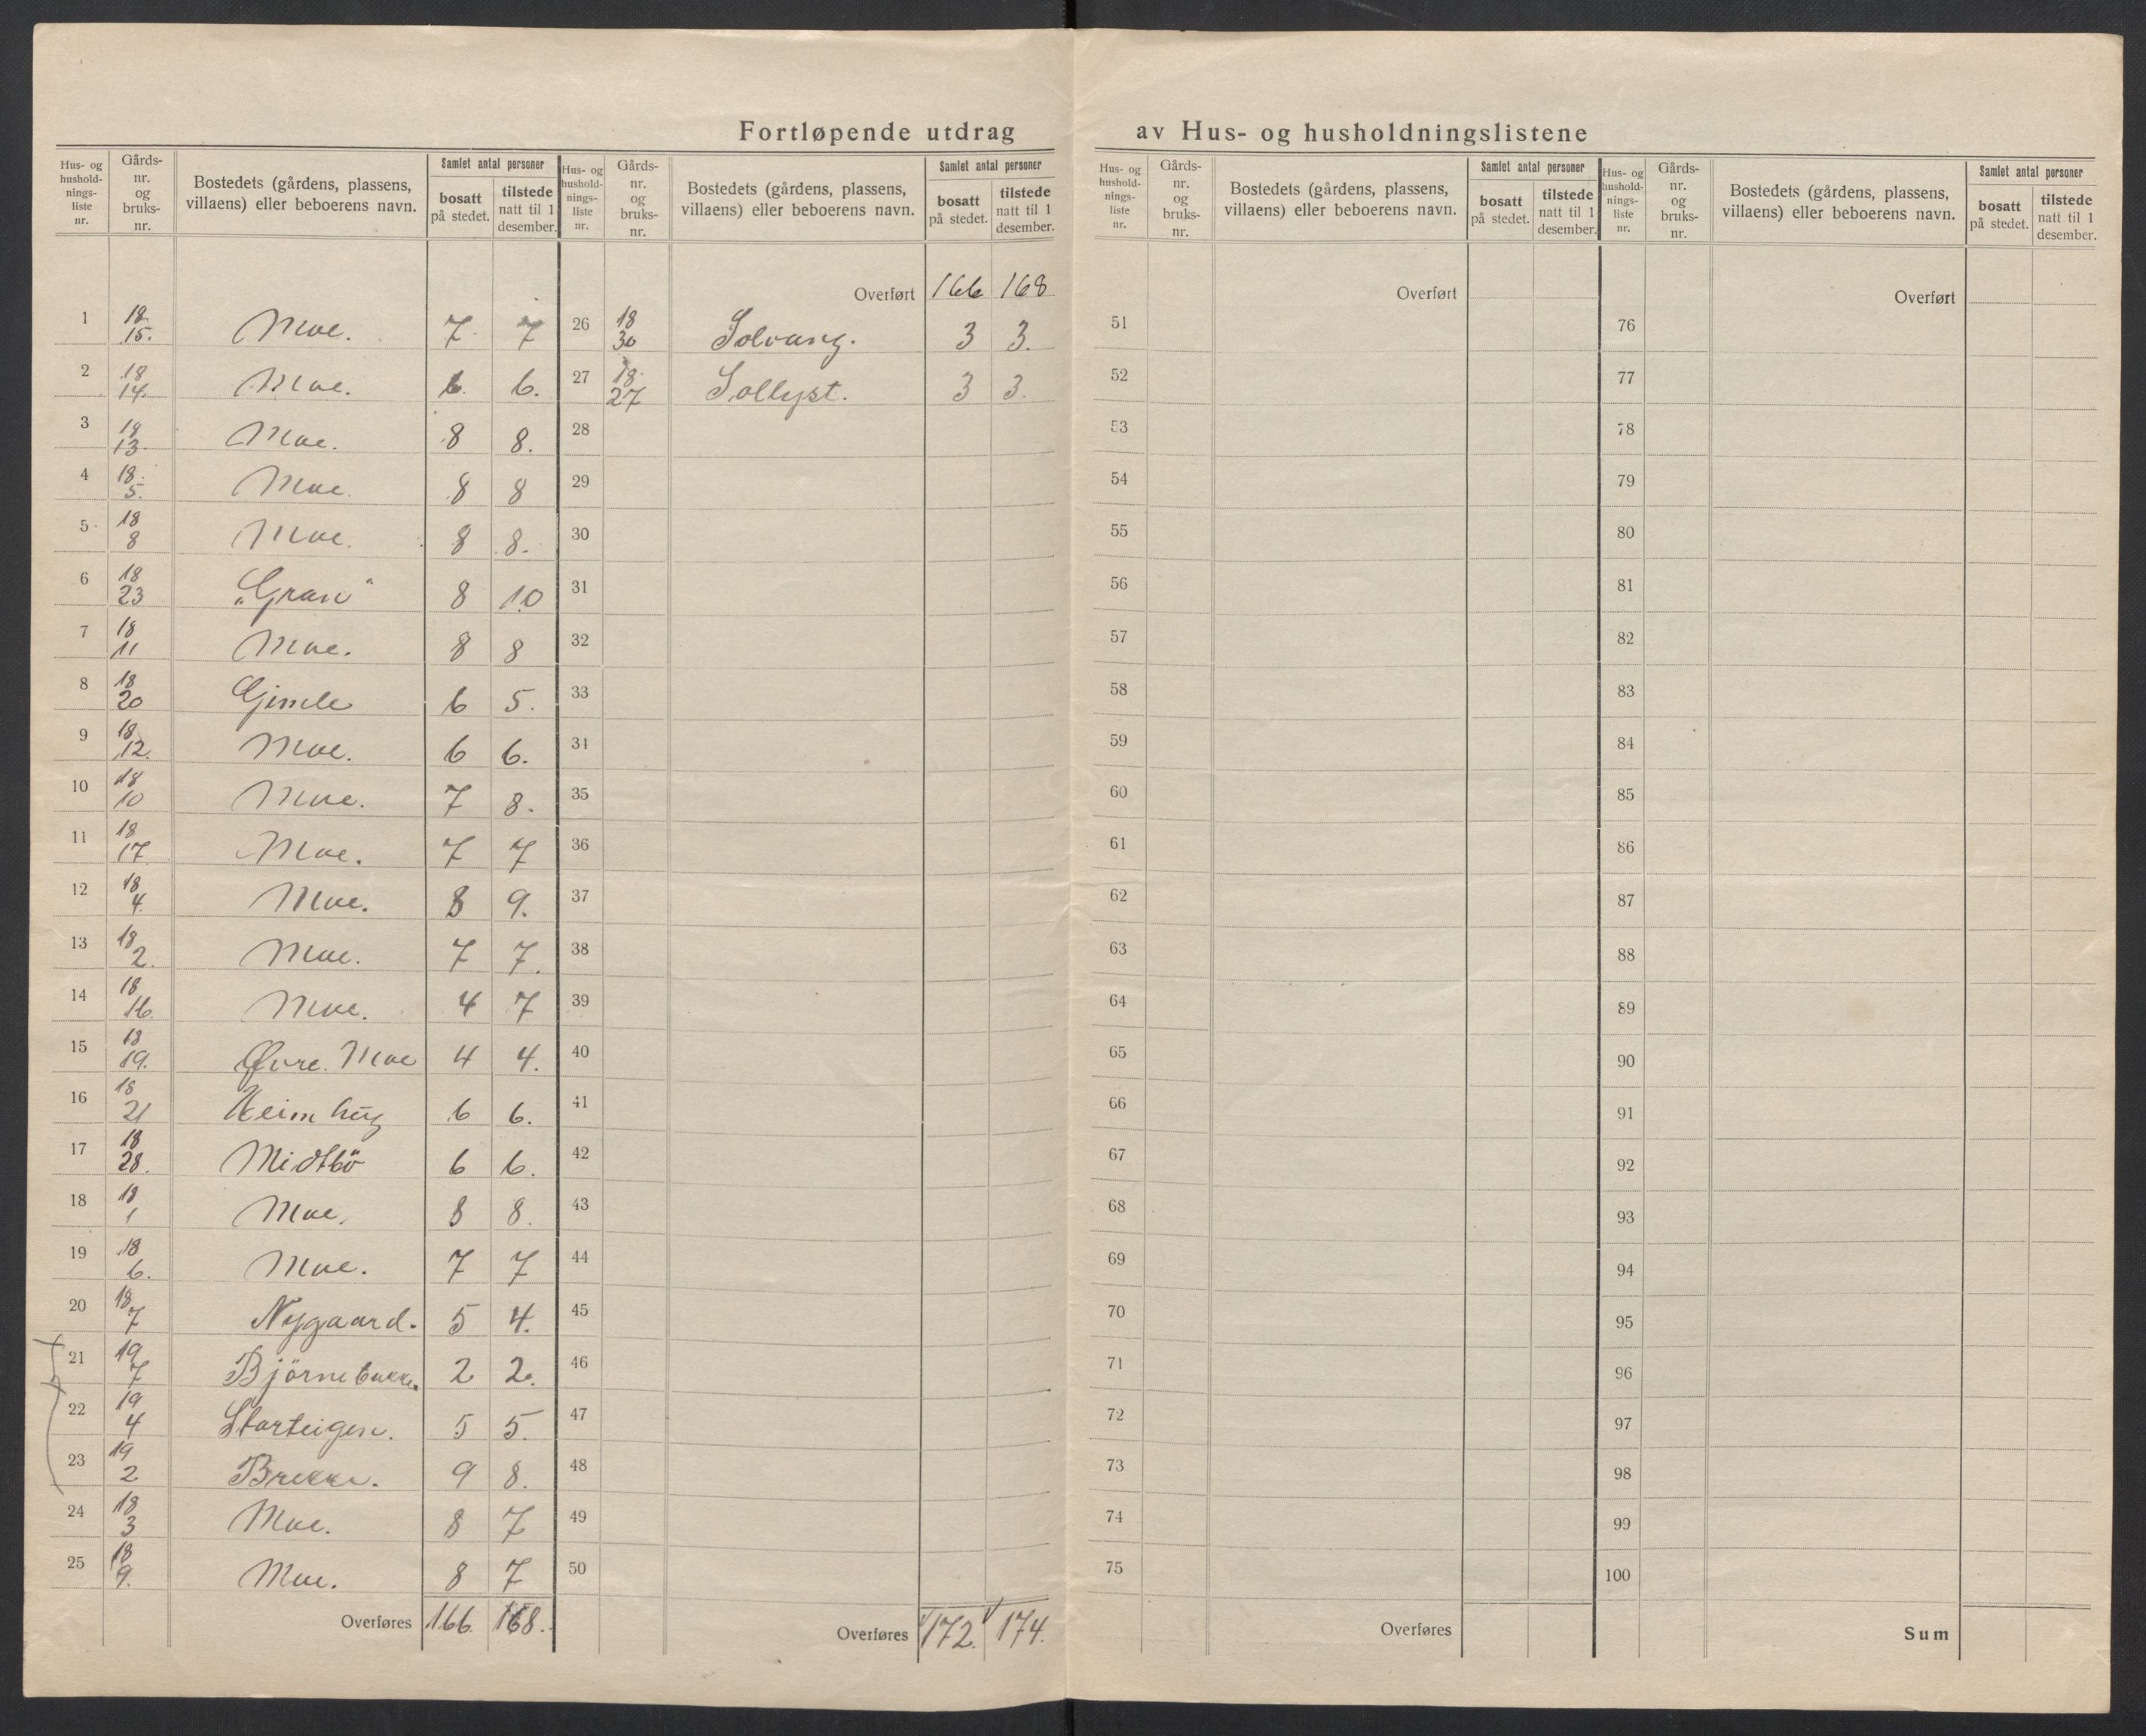 Fortløpende utdrag av Hus- og husholdningslistene
Hus- og husholdningsliste nr. | Gårdsnr. og bruksnr. | Bostedets (gårdens, plassens, villaens) eller beboerens navn. | Samlet antal personer bosatt på stedet. | tilstede natt til 1 desember.
1 18/15. Moe. 7 7
2 18/14. Moe. 6. 6.
3 18/13. Moe. 8 8.
4 18/5. Moe. 8 8
5 18/8 Moe. 8 8.
6 18/23 „Gran“ 8 10
7 18/11 Moe. 8 8
8 18/20 Gimle 6 5.
9 18/12. Moe. 6 6.
10 18/10 Moe. 7 8.
11 18/17 Moe. 7 7
12 18/4. Moe. 8 9.
13 18/2. Moe. 7 7.
14 18/16. Moe. 4 7
15 18/19. Øvre. Moe 4 4.
16 18/21 Heimhug 6 6.
17 18/28. Midtbö 6 6.
18 18/1 Moe. 8 8.
19 18/6. Moe. 7 7
20 18/7 Nygaard. 5 4.
21 19/7 Björnebakke. 2 2.
22 19/4 Storteigen. 5 5.
23 19/2 Brekke. 9 8.
24 18/3 Moe. 8 7
25 18/9. Moe. 8 7
Overføres 166. 168.
Hus- og husholdningsliste nr. | Gårdsnr. og bruksnr. | Bostedets (gårdens, plassens, villaens) eller beboerens navn. | Samlet antal personer bosatt på stedet. | tilstede natt til 1 desember.
Overført 166 168
26 18/30 Solvang. 3 3.
27 18/27 Sollyst. 3 3.
28
29
30
31
32
33
34
35
36
37
38
39
40
41
42
43
44
45
46
47
48
49
50
Overføres 172. 174.
Hus- og husholdningsliste nr. | Gårdsnr. og bruksnr. | Bostedets (gårdens, plassens, villaens) eller beboerens navn. | Samlet antal personer bosatt på stedet. | tilstede natt til 1 desember.
Overført
51
52
53
54
55
56
57
58
59
60
61
62
63
64
65
66
67
68
69
70
71
72
73
74
75
Overføres
Hus- og husholdningsliste nr. | Gårdsnr. og bruksnr. | Bostedets (gårdens, plassens, villaens) eller beboerens navn. | Samlet antal personer bosatt på stedet. | tilstede natt til 1 desember.
Overført
76
77
78
79
80
81
82
83
84
85
86
87
88
89
90
91
92
93
94
95
96
97
98
99
100
Sum